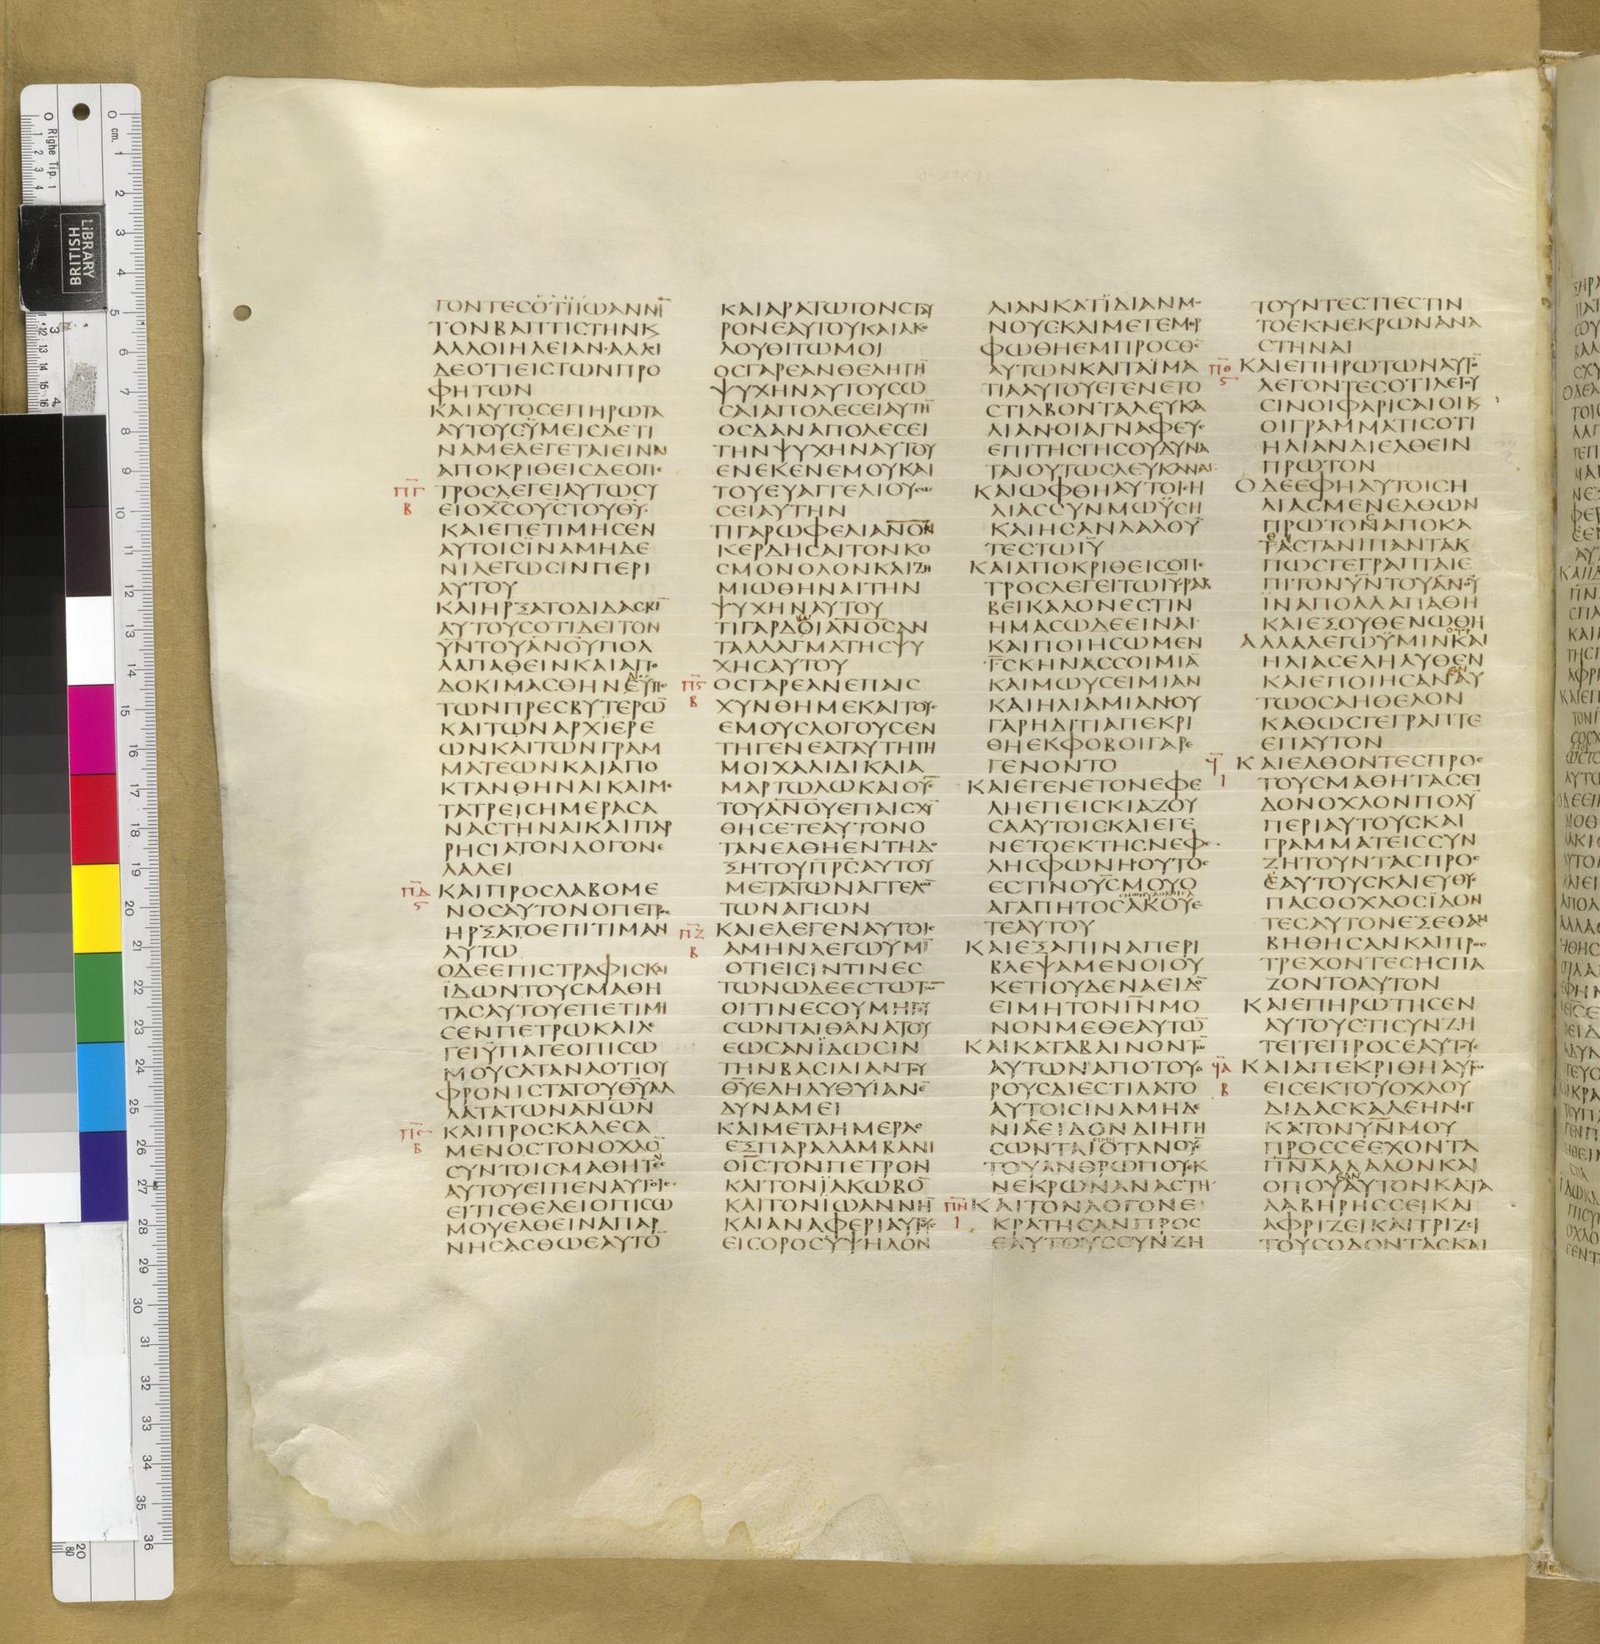 ΓΟΝΤΕϹΟΤΙΪΩΑΝΝΗ̅
ΤΟΝΒΑΠΤΙϹΤΗΝΚ
ΑΛΛΟΙΗΛΕΙΑΝΑΛΛΟΙ
ΔΕΟΤΙΕΙϹΤΩΝΠΡΟ
ΦΗΤΩΝ
ΚΑΙΑΥΤΟϹΕΠΗΡΩΤΑ
ΑΥΤΟΥϹΫΜΕΙϹΔΕΤΙ
ΝΑΜΕΛΕΓΕΤΑΙΕΙΝΑΙ
ΑΠΟΚΡΙΘΕΙϹΔΕΟΠΕ
ΠΓ Β
ΤΡΟϹΛΕΓΕΙΑΥΤΩϹΥ
ΕΙΟΧ̅Ϲ̅ΟΥ̅Ϲ̅ΤΟΥΘ̅Υ̅
ΚΑΙΕΠΕΤΙΜΗϹΕΝ
ΑΥΤΟΙϹΪΝΑΜΗΔΕ
ΝΙΛΕΓΩϹΙΝΠΕΡΙ
ΑΥΤΟΥ
ΚΑΙΗΡΞΑΤΟΔΙΔΑϹΚΙ̅
ΑΥΤΟΥϹΟΤΙΔΕΙΤΟΝ
Υ̅Ν̅ΤΟΥΑ̅Ν̅Ο̅Υ̅ΠΟΛ
ΛΑΠΑΘΕΙΝΚΑΙΑΠΟ
ΔΟΚΙΜΑϹΘΗΝΕΫΠΟ
ΤΩΝΠΡΕϹΒΥΤΕΡΩ̅
ΚΑΙΤΩΝΑΡΧΙΕΡΕ
ΩΝΚΑΙΤΩΝΓΡΑΜ
ΜΑΤΕΩΝΚΑΙΑΠΟ
ΚΤΑΝΘΗΝΑΙΚΑΙΜΕ
ΤΑΤΡΕΙϹΗΜΕΡΑϹΑ
ΝΑϹΤΗΝΑΙΚΑΙΠΑΡ
ΡΗϹΙΑΤΟΝΛΟΓΟΝΕ
ΛΑΛΕΙ
ΠΔ Ϛ
ΚΑΙΠΡΟϹΛΑΒΟΜΕ
ΝΟϹΑΥΤΟΝΟΠΕΤΡΟϹ
ΗΡΞΑΤΟΕΠΙΤΙΜΑΝ
ΑΥΤΩ
ΟΔΕΕΠΙϹΤΡΑΦΙϹΚΑΙ
ΪΔΩΝΤΟΥϹΜΑΘΗ
ΤΑϹΑΥΤΟΥΕΠΕΤΙΜΗ
ϹΕΝΠΕΤΡΩΚΑΙΛΕ
ΓΕΙΫΠΑΓΕΟΠΙϹΩ
ΜΟΥϹΑΤΑΝΑΟΤΙΟΥ
ΦΡΟΝΙϹΤΑΤΟΥΘ̅Υ̅ΑΛ
ΛΑΤΑΤΩΝΑΝΩΝ
ΠΕ Β
ΚΑΙΠΡΟϹΚΑΛΕϹΑ
ΜΕΝΟϹΤΟΝΟΧΛΟ̅
ϹΥΝΤΟΙϹΜΑΘΗΤΕϹ
ΑΥΤΟΥΕΙΠΕΝΑΥΤΟΙϹ
ΕΙΤΙϹΘΕΛΕΙΟΠΙϹΩ
ΜΟΥΕΛΘΕΙΝΑΠΑΡ
ΝΗϹΑϹΘΩΕΑΥΤΟ̅
ΚΑΙΑΡΑΤΩΤΟΝϹΤΑΥ
ΡΟΝΕΑΥΤΟΥΚΑΙΑΚΟ
ΛΟΥΘΙΤΩΜΟΙ
ΟϹΓΑΡΕΑΝΘΕΛΗΤΗ̅
ΨΥΧΗΝΑΥΤΟΥϹΩ
ϹΑΙΑΠΟΛΕϹΕΙΑΥΤΗ̅
ΟϹΔΑΝΑΠΟΛΕϹΕΙ
ΤΗΝΨΥΧΗΝΑΥΤΟΥ
ΕΝΕΚΕΝΕΜΟΥΚΑΙ
ΤΟΥΕΥΑΓΓΕΛΙΟΥϹΩ
ϹΕΙΑΥΤΗΝ
ΤΙΓΑΡΩΦΕΛΙΑ̅Ν̅Ο̅Ν̅
ΚΕΡΔΗϹΑΙΤΟΝΚΟ
ϹΜΟΝΟΛΟΝΚΑΙΖΗ
ΜΙΩΘΗΝΑΙΤΗΝ
ΨΥΧΗΝΑΥΤΟΥ
ΤΙΓΑΡΔΟΙΑ̅Ν̅Ο̅Ϲ̅ΑΝ
ΤΑΛΛΑΓΜΑΤΗϹΨΥ
ΧΗϹΑΥΤΟΥ
ΠϚ Β
ΟϹΓΑΡΕΑΝΕΠΑΙϹ
ΧΥΝΘΗΜΕΚΑΙΤΟΥϹ
ΕΜΟΥϹΛΟΓΟΥϹΕΝ
ΤΗΓΕΝΕΑΤΑΥΤΗΤΗ
ΜΟΙΧΑΛΙΔΙΚΑΙΑ
ΜΑΡΤΩΛΩΚΑΙΟΥ̅Ϲ̅
ΤΟΥΑ̅Ν̅Ο̅Υ̅ΕΠΑΙϹΧΥ̅
ΘΗϹΕΤΕΑΥΤΟΝΟ
ΤΑΝΕΛΘΗΕΝΤΗΔΟ
ΞΗΤΟΥΠ̅Ρ̅Ϲ̅ΑΥΤΟΥ
ΜΕΤΑΤΩΝΑΓΓΕΛΩ̅
ΤΩΝΑΓΙΩΝ
ΠΖ Β
ΚΑΙΕΛΕΓΕΝΑΥΤΟΙϹ
ΑΜΗΝΛΕΓΩΫΜΙ̅
ΟΤΙΕΙϹΙΝΤΙΝΕϹ
ΤΩΝΩΔΕΕϹΤΩΤΩ̅
ΟΙΤΙΝΕϹΟΥΜΗΓΕΥ
ϹΩΝΤΑΙΘΑΝΑΤΟΥ
ΕΩϹΑΝΪΔΩϹΙΝ
ΤΗΝΒΑϹΙΛΙΑΝΤΟΥ
Θ̅Υ̅ΕΛΗΛΥΘΥΙΑΝΕ̅
ΔΥΝΑΜΕΙ
ΚΑΙΜΕΤΑΗΜΕΡΑϹ
ΕΞΠΑΡΑΛΑΜΒΑΝΙ
ΟΙ̅Ϲ̅ΤΟΝΠΕΤΡΟΝ
ΚΑΙΤΟΝΪΑΚΩΒΟ̅
ΚΑΙΤΟΝΙΩΑΝΝΗ̅
ΚΑΙΑΝΑΦΕΡΙΑΥΤΟΥϹ
ΕΙϹΟΡΟϹΥΨΗΛΟΝ
ΛΙΑΝΚΑΤΪΔΙΑΝΜΟ
ΝΟΥϹΚΑΙΜΕΤΕΜΟΡ
ΦΩΘΗΕΜΠΡΟϹΘΕ̅
ΑΥΤΩΝΚΑΙΤΑΪΜΑ
ΤΙΑΑΥΤΟΥΕΓΕΝΕΤΟ
ϹΤΙΛΒΟΝΤΑΛΕΥΚΑ
ΛΙΑΝΟΙΑΓΝΑΦΕΥϹ
ΕΠΙΤΗϹΓΗϹΟΥΔΥΝΑ
ΤΑΙΟΥΤΩϹΛΕΥΚΑΝΑΙ
ΚΑΙΩΦΘΗΑΥΤΟΙϹΗ
ΛΙΑϹϹΥΝΜΩΫϹΗ
ΚΑΙΗϹΑΝΛΑΛΟΥ̅
ΤΕϹΤΩΙ̅Υ̅
ΚΑΙΑΠΟΚΡΙΘΕΙϹΟΠΕ
ΤΡΟϹΛΕΓΕΙΤΩΙ̅Υ̅ΡΑΒ
ΒΕΙΚΑΛΟΝΕϹΤΙΝ
ΗΜΑϹΩΔΕΕΙΝΑΙ
ΚΑΙΠΟΙΗϹΩΜΕΝ
Γ̅ϹΚΗΝΑϹϹΟΙΜΙΑ̅
ΚΑΙΜΩΥϹΕΙΜΙΑΝ
ΚΑΙΗΛΙΑΜΙΑΝΟΥ
ΓΑΡΗΔΙΤΙΑΠΕΚΡΙ
ΘΗΕΚΦΟΒΟΙΓΑΡΕ
ΓΕΝΟΝΤΟ
ΚΑΙΕΓΕΝΕΤΟΝΕΦΕ
ΛΗΕΠΕΙϹΚΙΑΖΟΥ
ϹΑΑΥΤΟΙϹΚΑΙΕΓΕ
ΝΕΤΟΕΚΤΗϹΝΕΦΕ
ΛΗϹΦΩΝΗΟΥΤΟϹ
ΕϹΤΙΝΟΥ̅Ϲ̅ΜΟΥΟ
ΑΓΑΠΗΤΟϹΑΚΟΥΕ
ΤΕΑΥΤΟΥ
ΚΑΙΕΞΑΠΙΝΑΠΕΡΙ
ΒΛΕΨΑΜΕΝΟΙΟΥ
ΚΕΤΙΟΥΔΕΝΑΕΙΔΟ̅
ΕΙΜΗΤΟΝΙ̅Ν̅ΜΟ
ΝΟΝΜΕΘΕΑΥΤΩ̅
ΚΑΙΚΑΤΑΒΑΙΝΟΝΤΩ̅
ΑΥΤΩΝΑΠΟΤΟΥΟ
ΡΟΥϹΔΙΕϹΤΙΛΑΤΟ
ΑΥΤΟΙϹΙΝΑΜΗΔΕ
ΝΙΑΕΙΔΟΝΔΙΗΓΗ
ϹΩΝΤΑΙΟΤΑΝΟΥ̅Ϲ̅
ΤΟΥΑΝΘΡΩΠΟΥΕΚ
ΝΕΚΡΩΝΑΝΑϹΤΗ
ΠΗ Ι
ΚΑΙΤΟΝΛΟΓΟΝΕ
ΚΡΑΤΗϹΑΝΠΡΟϹ
ΕΑΥΤΟΥϹϹΥΝΖΗ
ΤΟΥΝΤΕϹΤΙΕϹΤΙΝ
ΤΟΕΚΝΕΚΡΩΝΑΝΑ
ϹΤΗΝΑΙ
ΠΘ Ϛ
ΚΑΙΕΠΗΡΩΤΩΝΑΥΤΟ̅
ΛΕΓΟΝΤΕϹΟΤΙΛΕΓΟΥ
ϹΙΝΟΙΦΑΡΙϹΑΙΟΙΚ
ΟΙΓΡΑΜΜΑΤΙϹΟΤΙ
ΗΛΙΑΝΔΙΕΛΘΕΙΝ
ΠΡΩΤΟΝ
ΟΔΕΕΦΗΑΥΤΟΙϹΗ
ΛΙΑϹΜΕΝΕΛΘΩΝ
ΠΡΩΤΟΝΑΠΟΚΑ
ΤΑϹΤΑΝΙΠΑΝΤΑΚ
ΠΩϹΓΕΓΡΑΠΤΑΙΕ
ΠΙΤΟΝΥ̅Ν̅ΤΟΥΑ̅Ν̅Ο̅Υ̅
ΪΝΑΠΟΛΛΑΠΑΘΗ
ΚΑΙΕΞΟΥΘΕΝΩΘΗ
ΑΛΛΑΛΕΓΩΫΜΙΝΚΑΙ
ΗΛΙΑϹΕΛΗΛΥΘΕΝ
ΚΑΙΕΠΟΙΗϹΑΝΑΥ
ΤΩΟϹΑΗΘΕΛΟΝ
ΚΑΘΩϹΓΕΓΡΑΠΤΕ
ΕΠΑΥΤΟΝ
Ϟ Ι
ΚΑΙΕΛΘΟΝΤΕϹΠΡΟϹ
ΤΟΥϹΜΑΘΗΤΑϹΕΙ
ΔΟΝΟΧΛΟΝΠΟΛΥ̅
ΠΕΡΙΑΥΤΟΥϹΚΑΙ
ΓΡΑΜΜΑΤΕΙϹϹΥΝ
ΖΗΤΟΥΝΤΑϹΠΡΟϹ
ΕΑΥΤΟΥϹΚΑΙΕΥΘΥϹ
ΠΑϹΟΟΧΛΟϹΪΔΟΝ
ΤΕϹΑΥΤΟΝΕΞΕΘΑΜ
ΒΗΘΗϹΑΝΚΑΙΠΡΟϹ
ΤΡΕΧΟΝΤΕϹΗϹΠΑ
ΖΟΝΤΟΑΥΤΟΝ
ΚΑΙΕΠΗΡΩΤΗϹΕΝ
ΑΥΤΟΥϹΤΙϹΥΝΖΗ
ΤΕΙΤΕΠΡΟϹΕΑΥΤΟΥϹ
ϞΑ Β
ΚΑΙΑΠΕΚΡΙΘΗΑΥΤΩ
ΕΙϹΕΚΤΟΥΟΧΛΟΥ
ΔΙΔΑϹΚΑΛΕΗΝΕΓ
ΚΑΤΟΝΥ̅Ν̅ΜΟΥ
ΠΡΟϹϹΕΕΧΟΝΤΑ
Π̅Ν̅Α̅ΑΛΑΛΟΝΚΑΙ
ΟΠΟΥΑΥΤΟΝΚΑΤΑ
ΛΑΒΗΡΗϹϹΕΙΚΑΙ
ΑΦΡΙΖΕΙΚΑΙΤΡΙΖΕΙ
ΤΟΥϹΟΔΟΝΤΑϹΚΑΙ
BRITISH
LIBRARY